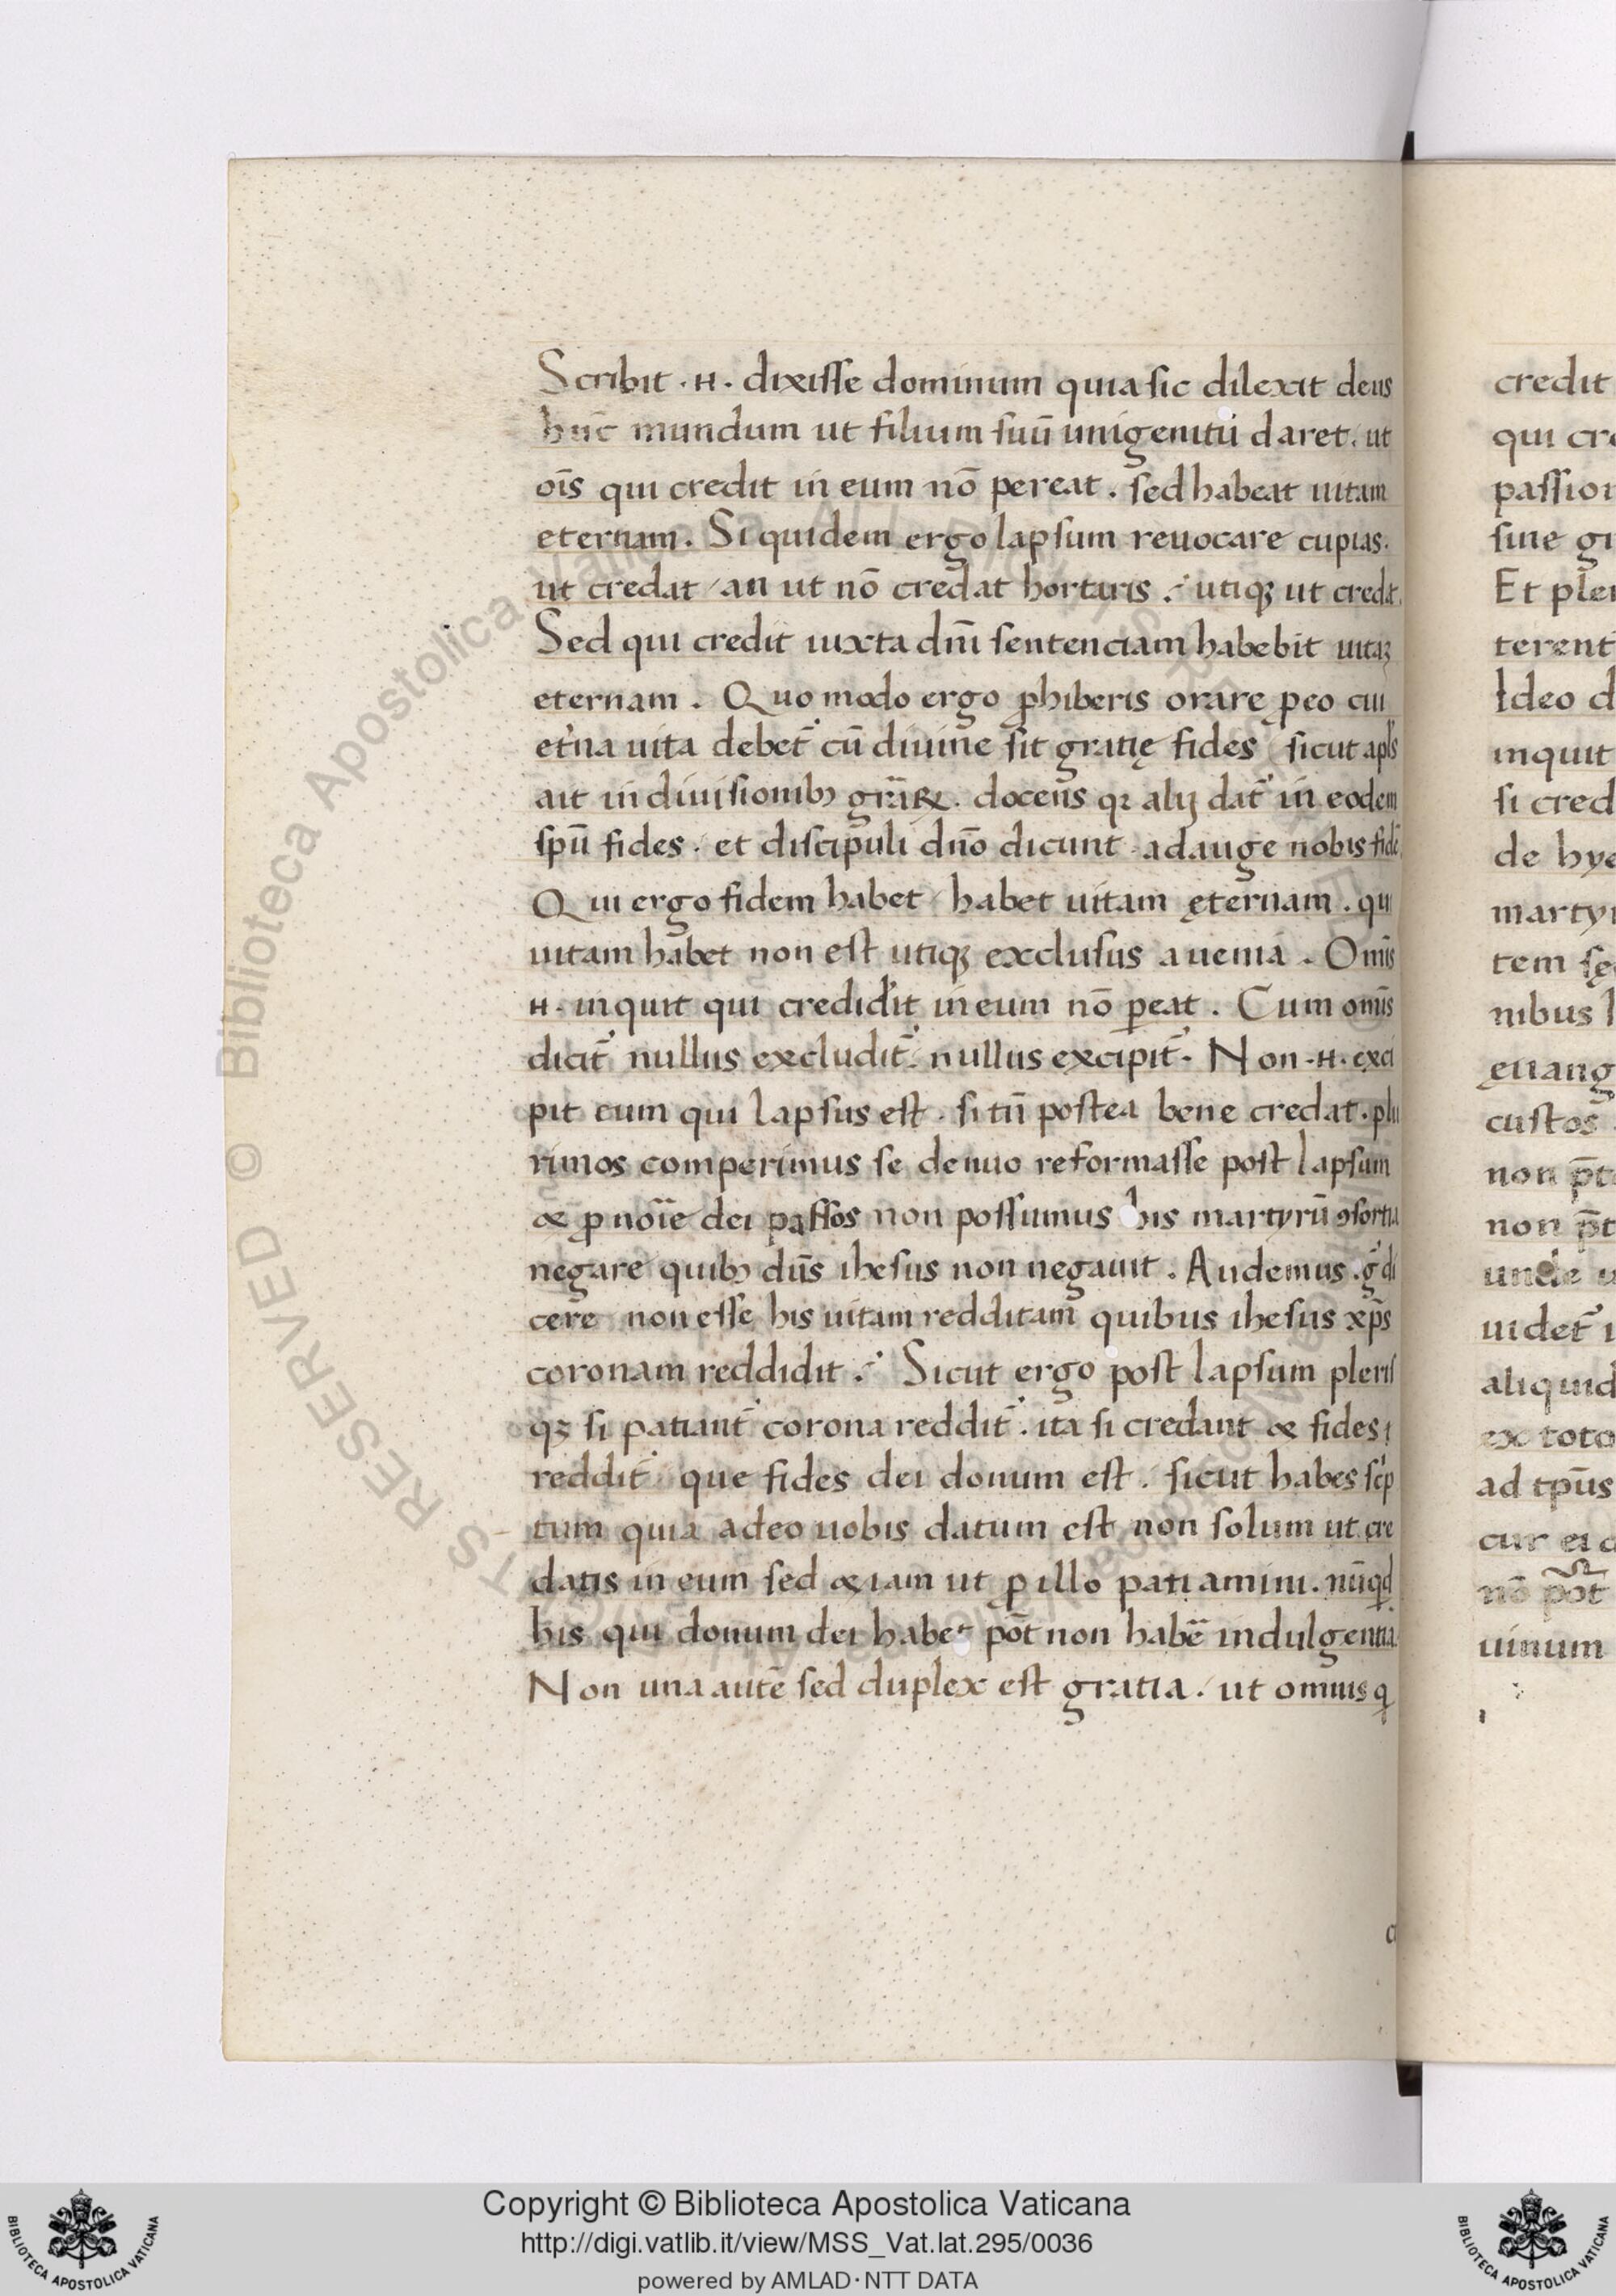 Scribit .H. dixisse dominum quia sic dilexit deus
hūc mundum ut filium suū unigenitū daret. ut
oīs qui credit in eum nō pereat. sed habeat uitam
eternam. Si quidem ergo lapsum reuocare cupias.
ut credat / an ut nō credat hortaris .՛ utiqꝫ ut credat.
Sed qui credit iuxta dnī sentenciam habebit uitaꝫ
eternam. Quo modo ergo ꝓhiberis orare ꝑ eo cui
et̉na uita debet᷑ cū diuine sit gratię fides / sicut apl̄s
ait in diuisionibꝫ grāꝝ. docens qꝛ alij dat᷑ in eodem
spū fides. et discipuli dnō dicunt. adauge nobis fidē.
Qui ergo fidem habet / habet uitam ęternam. qui
uitam habet non est utiqꝫ exclusus a uenia. Omīs
H. inquit qui credid̉it in eum nō ꝑeat. Cum omīs
dicit᷑ nullus excludit᷑. nullus excipit᷑. Non .H. exci
pit eum qui lapsus est. si tn̄ postea bene credat. plu
rimos comperimus se denuo reformasse post lapsum
& ꝓ noīe dei passos non possumus his martyrū ꝯsortia
negare quibꝫ dn̄s ihesus non negauit. Audemus .g̉ di
cere non esse his uitam redditam quibus ihesus xp̄s
coronam reddidit .՛ Sicut ergo post lapsum pleris
qꝫ si patiant᷑ corona reddit᷑. ita si credant & fides
reddit᷑ que fides dei donum est. sicut habes sc̉p
tum quia adeo uobis datum est non solum ut cre
datis in eum sed & iam ut ꝓ illo patiamini. nūqd
his qui donum dei habet pōt non habē indulgentiā.
Non una autē sed duplex est gratia. ut omnis q
credit
qui cre
passion
sine gr
Et ple
terent
Ideo d
inquit
si cred
de hye
martyr
tem sę
nibus
ęuang
custos
non p̄t
non p̄t
unde u
uidet᷑ i
aliquid
ex toto
ad tp̄us
cur ei
nō pōt
uinum
© Biblioteca Apostolica Vaticana ALL RIGHTS RESERVED
Copyright © Biblioteca Apostolica Vaticana
http://digi.vatlib.it/view/MSS_Vat.lat.295/0036
powered by AMLAD·NTT DATA
BIBLIOTECA APOSTOLICA VATICANA
BIBLIOTECA APOSTOLICA VATICANA